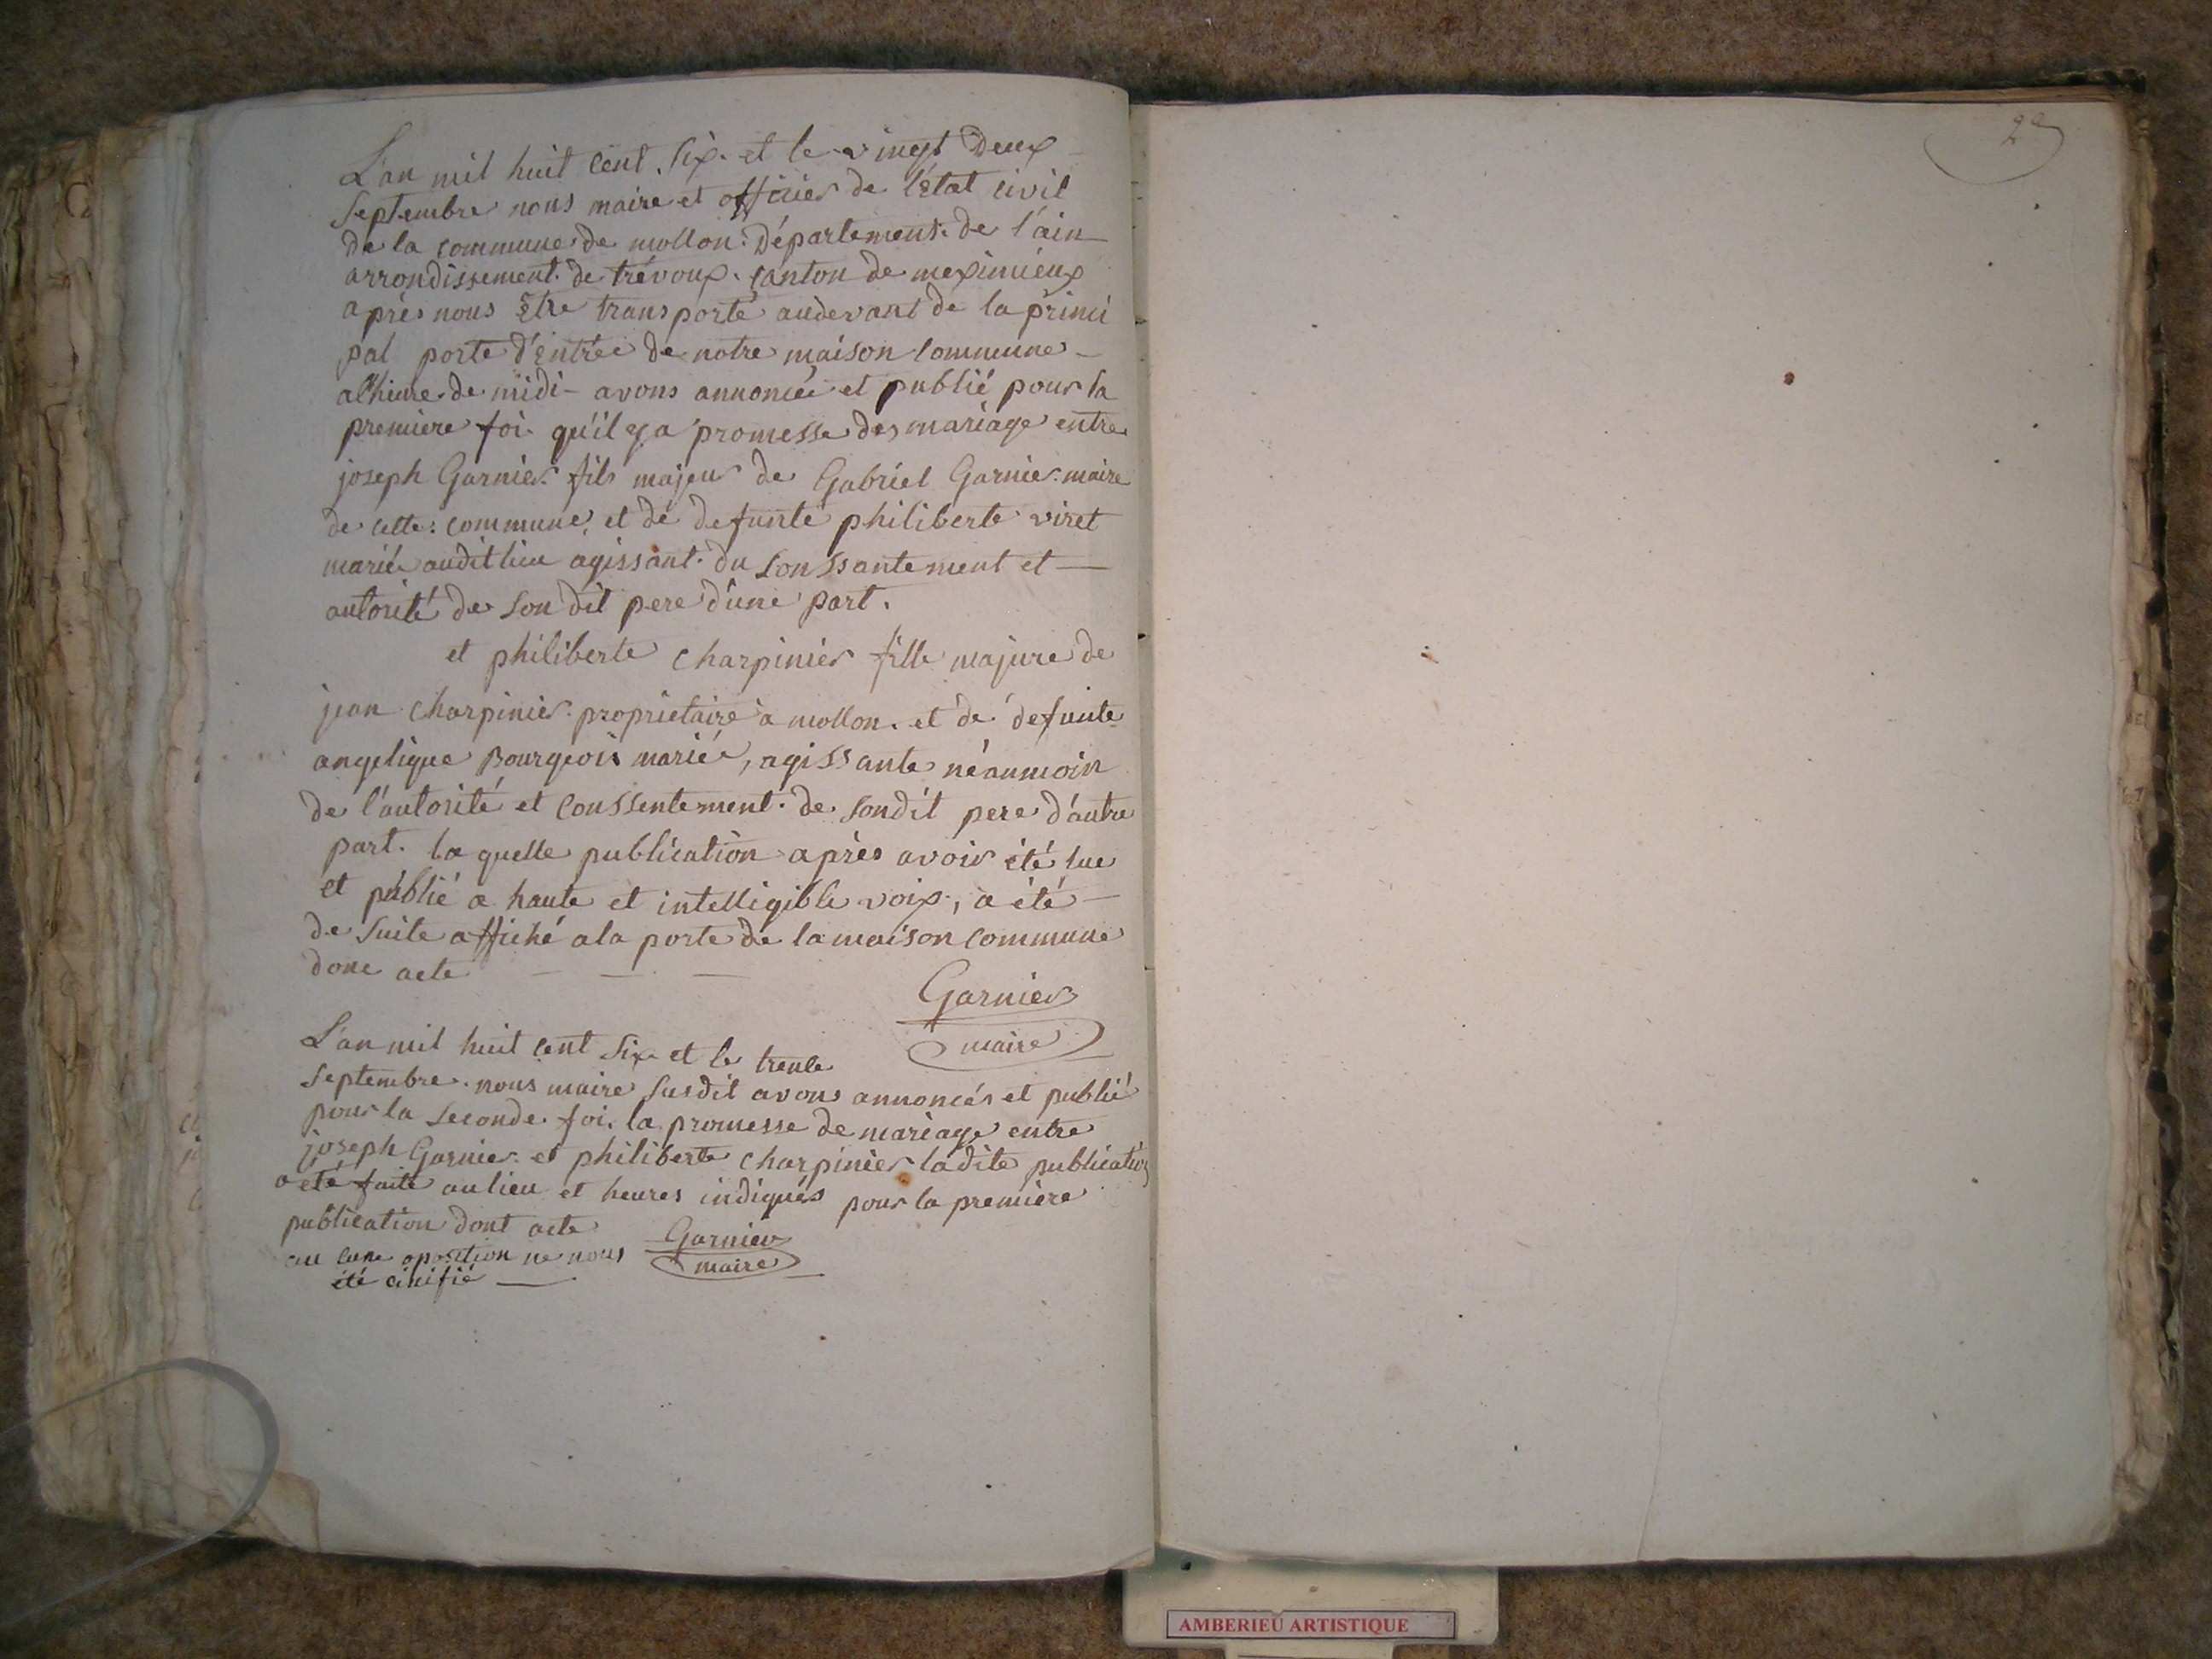 L'an mil huit cent six et le vingt deux
septembre nous maire et officier de l'état civil
de la commune de mollon département de l'ain
arrondissement de trévoux canton de meximieux
après nous être transporté audevant de la princi
pal porte d'entrée de notre maison commune
alheure de midi avons annoncée et publié pour la
premiere foi qu'il y a promesse des mariage entre
joseph Garnier fils majeur de Gabriel Garnier maire
de cette commune et de defunte philiberte viret
marié audit lieu agissant du conssantement et
autorité de son dit pere d'une part.
et philiberte charpinier fille majure de
jean charpinier propriétaire a mollon et de defunte
angelique Bourgeois marié, agissante néanmoin
de l'autorité et conssentement de sondit pere d'autre
part. la quelle publication après avoir été lue
et publié a haute et intelligible voix, a été
de suite affiché a la porte de la maison commune
donc acte
Garnier
maire
L'an mil huit cent six et le trente
septembre nous maire susdit avons annoncés et publié
pour la seconde foi la promesse de mariage entre
joseph Garnier et philiberte charpinier ladite publication
a été faite au lieu et heures indiqués pour la premiere
publication dont acte
au cune oposition ne nous
été cinifié
Garnier
maire
AMBERIEU ARTISTIQUE